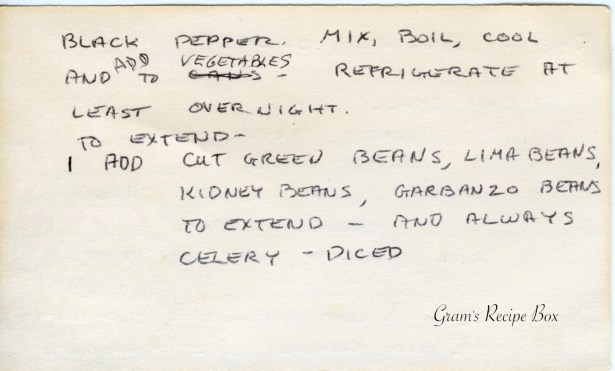 BLACK PEPPER. MIX, BOIL, COOL
ADD VEGETABLES
AND TO CANS - REFRIGERATE AT
LEAST OVERNIGHT.
TO EXTEND-
I ADD CUT GREEN BEANS, LIMA BEANS,
KIDNEY BEANS, GARBANZO BEANS
TO EXTEND - AND ALWAYS
CELERY - DICED
Gram's Recipe Box